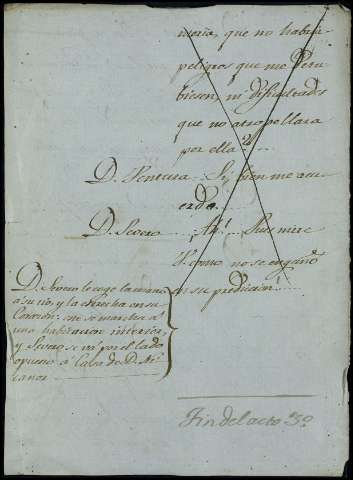 moria, que no habria
peligros que me
biesen, ni dificultades
que no atropellara
por ella?...
D. Ventura... Si, bien me acu-
erdo.
D. Severo... ¡Ah! Pues mire
V. como no se engañó
en su prediccion!......
D. Severo le coge la mano
á su tio, y la
Corazon: este se marcha á
una habitacion interior,
y Severo se vá por el lado
opuesto á casa de D.
Fin del acto 3º